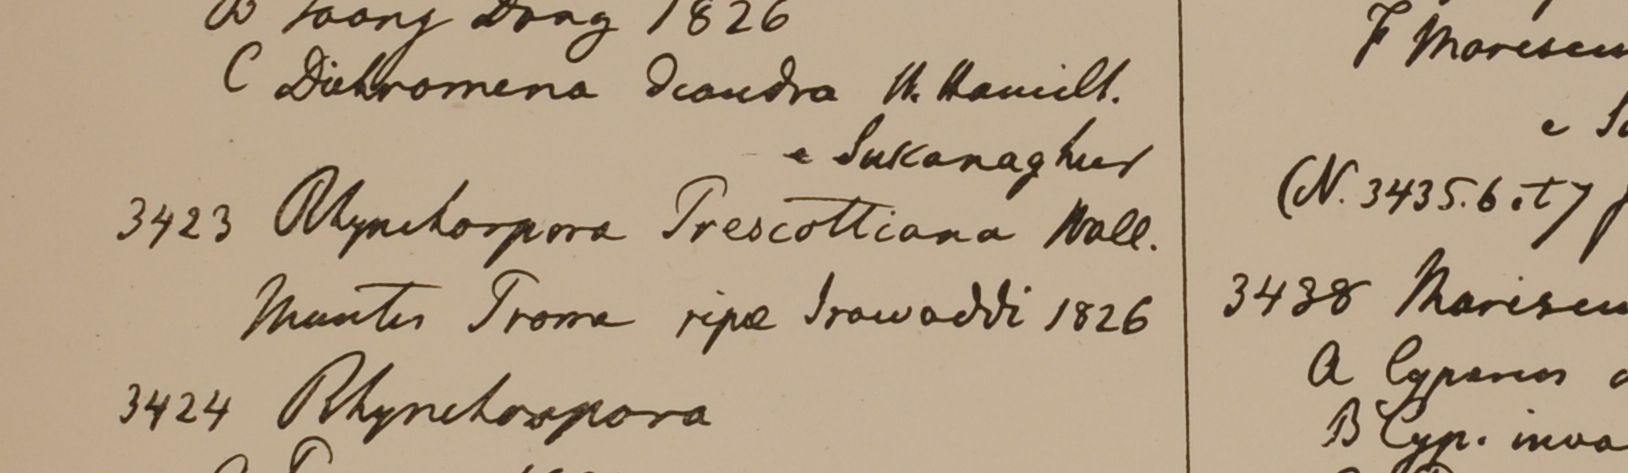 B Taong Dong 1826
C Dichromena diandra H. Hamilt.
e Sukanaghur
3423 Rhynchospora Prescottiana Wall.
Montes Prome ripæ Irawaddi 1826
3424 Rhynchospora
F Mariscu
e
(N. 3435.6.t7
3438 Mariscu
A Cyperus
B Cyp. inva